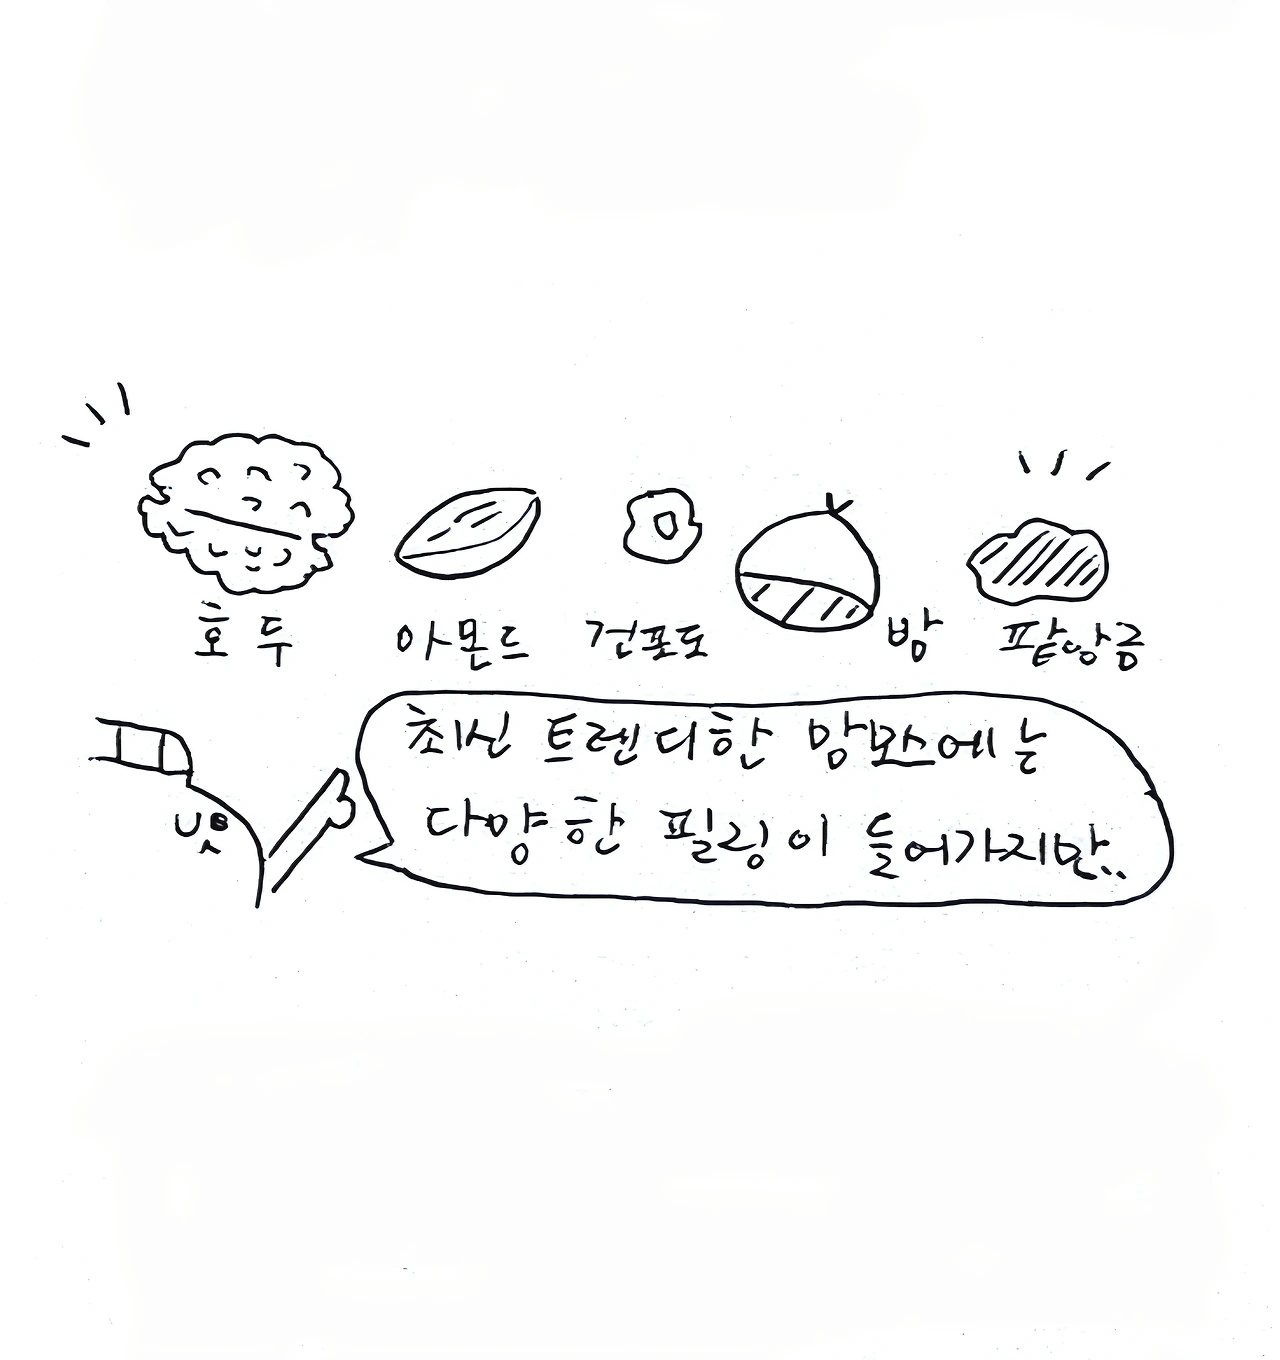 호두 아몬드 건포도 밤 팥앙금
최신 트렌디한 맘모스에는
다양한 필링이 들어가지만..